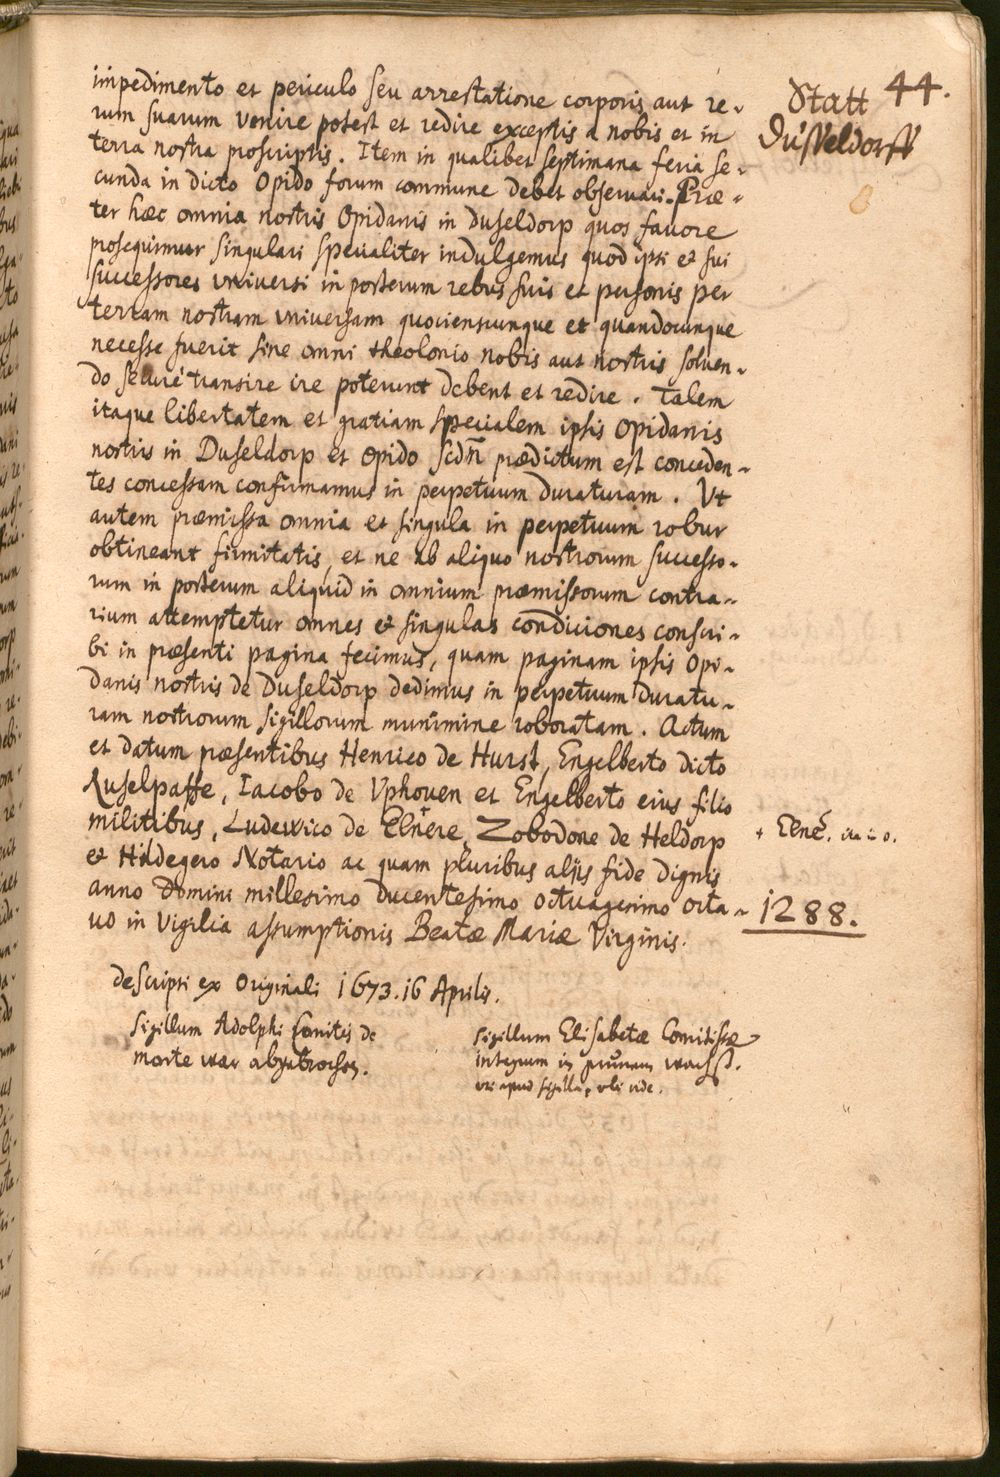 44.
Statt
Dusseldorff
impedimento et periculo seu arrestatione corporis aut re-
rum suarum venire potest et redire exceptis a nobis et in
terra nostra proscriptis. Item in qualibet septimana feria se-
cunda in dicto Opido forum commune debet observari. Præ-
ter hæc omnia nostris Opidanis in Duseldorp quos favore
prosequimur singulari specialiter indulgemus quod ipsi et sui
successores vniversi in posterum rebus suis et personis per
terram nostram vniversam quociescunque et quandocunque
necesse fuerit sine omni theolonio nobis aut nostris solven-
do secure transire ire poterunt debent et redire. Talem
itaque libertatem et gratiam specialem ipsis Opidanis
nostris in Duseldorp et Opido scdn prædictum est conceden-
tes concessam confirmamus in perpetuum duraturam. Vt
autem præmissa omnia et singula in perpetuum robur
obtineant firmitatis, et ne ab aliquo nostrorum successo-
rum in posterum aliquid in omnium præmissorum contra-
rium attemptetur omnes et singulas condiciones conscri-
bi in præsenti pagina fecimus, quam paginam ipsis Opi-
danis nostris de Duseldorp dedimus in perpetuum duratu-
ram nostrorum sigillorum munimine roboratam. Actum
et datum præsentibus Henrico de Hurst, Engelberto dicto
Ruselpaffe, Iacobo de Vphoven et Engelberto eius filio
militibus, Ludewico de + Elnere, Zobodone de Heldorp
+ Elner.
et Hildegero Notario ac quam pluribus alijs fide dignis
anno Domini millesimo ducentesimo octuagesimo octa-
1288.
uo in Vigilia assumptionis Beatæ Mariæ Virginis.
descripti ex Originali 1673. 16 Aprilis.
Sigillum Adolphi Comitis de
monte war abgebrochen.
Sigillum Elisabetæ Comitissæ
integrum in